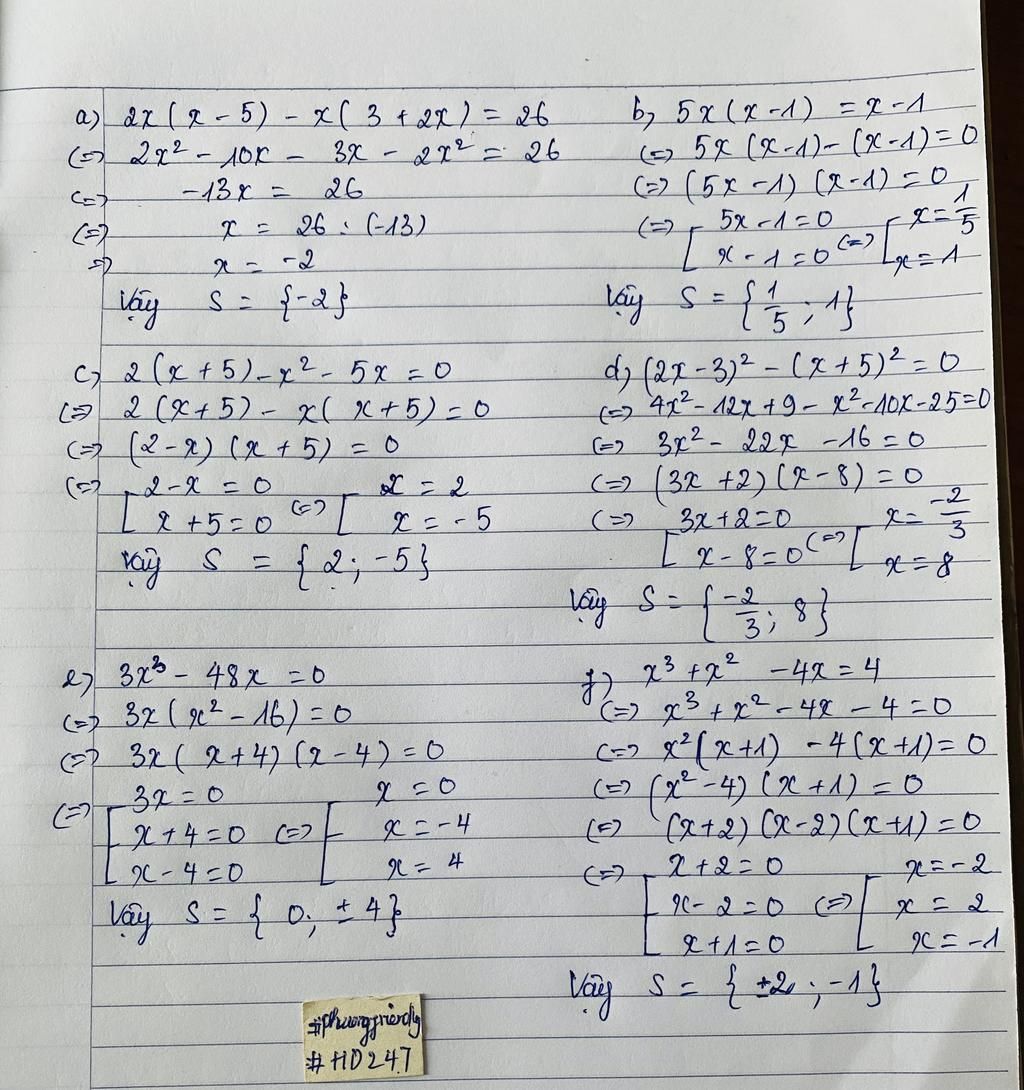 a) 2x(x - 5) - x(3 + 2x) = 26
(=) 2x² - 10x - 3x - 2x² = 26
(=) -13x = 26
(=) x = 26 : (-13)
=) x = -2
Vậy S = {-2}
b) 5x(x - 1) = x - 1
(=) 5x(x-1) - (x-1) = 0
(=) (5x - 1)(x - 1) = 0
(=) [ 5x - 1 = 0 (=) [ x = 1/5
x - 1 = 0 x = 1
Vậy S = {1/5 ; 1}
c) 2(x + 5) - x² - 5x = 0
(=) 2(x+5) - x(x+5) = 0
(=) (2-x)(x+5) = 0
(=) [ 2-x = 0 (=) [ x = 2
x + 5 = 0 x = -5
Vậy S = {2; -5}
d) (2x - 3)² - (x + 5)² = 0
(=) 4x² - 12x + 9 - x² - 10x - 25 = 0
(=) 3x² - 22x - 16 = 0
(=) (3x + 2)(x - 8) = 0
(=) [ 3x + 2 = 0 (=) [ x = -2/3
x - 8 = 0 x = 8
Vậy S = {-2/3; 8}
e) 3x³ - 48x = 0
(=) 3x(x² - 16) = 0
(=) 3x(x + 4)(x - 4) = 0
(=) [ 3x = 0 (=) [ x = 0
x + 4 = 0 x = -4
x - 4 = 0 x = 4
Vậy S = {0; ±4}
f) x³ + x² - 4x = 4
(=) x³ + x² - 4x - 4 = 0
(=) x²(x+1) - 4(x+1) = 0
(=) (x² - 4)(x + 1) = 0
(=) (x+2)(x-2)(x+1) = 0
(=) [ x + 2 = 0 (=) [ x = -2
x - 2 = 0 x = 2
x + 1 = 0 x = -1
Vậy S = {±2; -1}
#phuongfriendly
#HD247